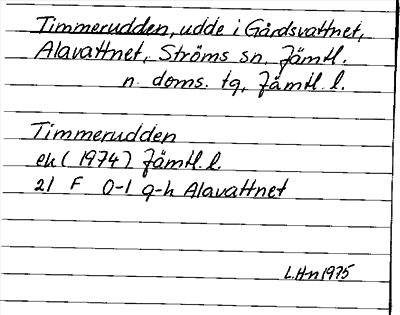 Timmerudden, udde i Gårdsvattnet,
Alavattnet, Ströms sn, Jämtl.
n. doms. tg, Jämtl. l.
Timmerudden
ek (1974) Jämtl. l.
21 F 0-1 g-h Alavattnet
L.H-n 1975